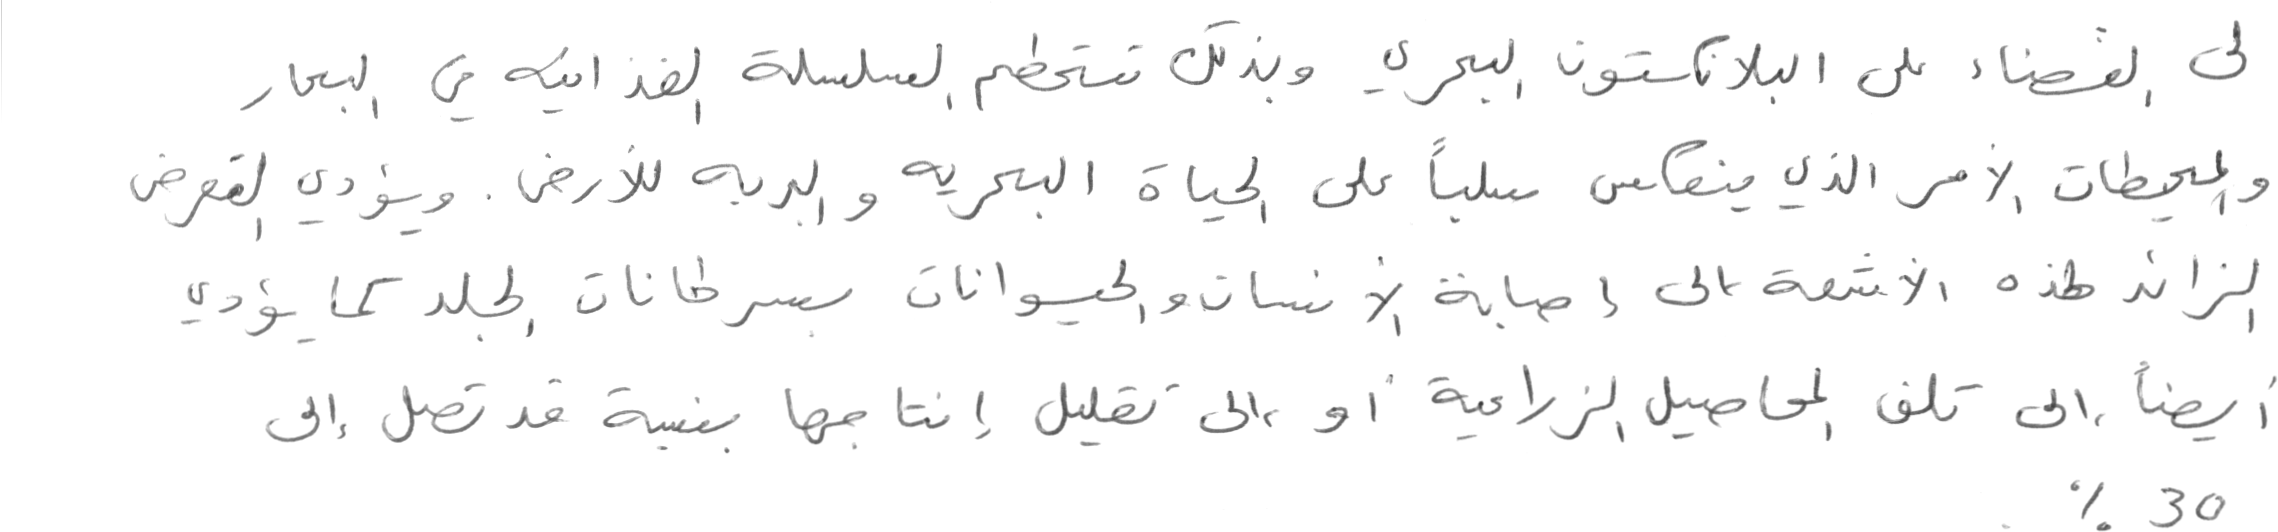 لى القضاء على البلانكستون البحري وبذلك تتحطم السلسلة الغذائيه في البحار
والمحيطات الأمر الذي ينعكس سلباً على الحياة البحريه والبريه للأرض. ويؤدي التعرض
الزائد لهذه الأشعة الى إصابة الأنسان والحيوانات بسرطانات الجلد كما يؤدي
أيضاً الى تلف المحاصيل الزراعية أو الى تقليل إنتاجها بنسبة قد تصل إلى
30 %.